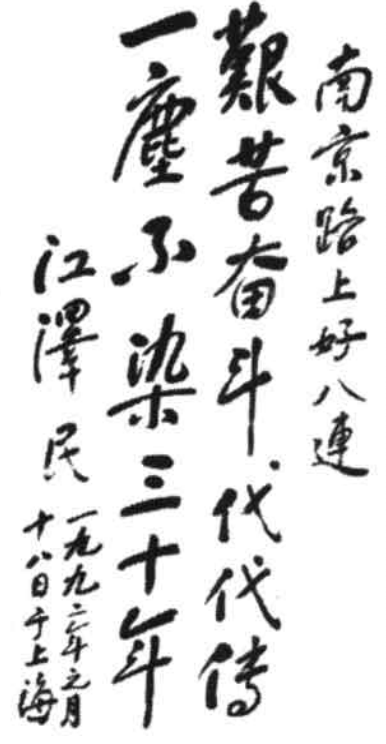 南京路上好八連
艱苦奋斗代代传
一塵不染三十年
江澤民
一九九二年元月
十八日于上海